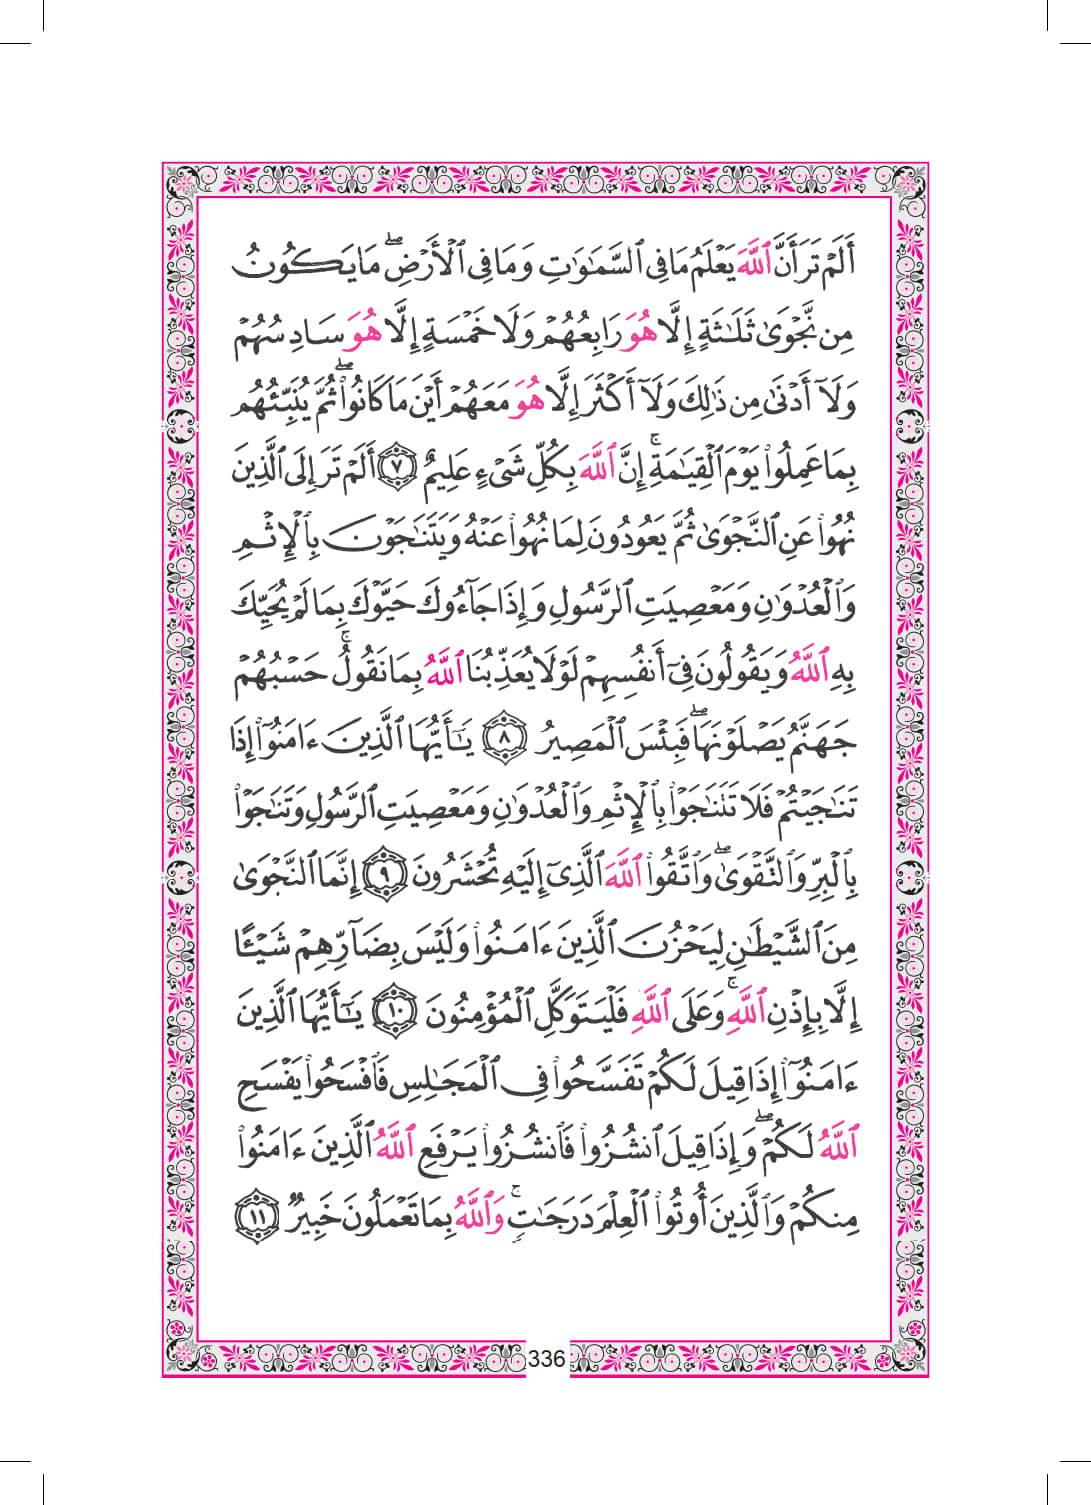 أَلَمْ تَرَ أَنَّ ٱللَّهَ يَعْلَمُ مَا فِى ٱلسَّمَٰوَٰتِ وَمَا فِى ٱلْأَرْضِۖ مَا يَكُونُ
مِن نَّجْوَىٰ ثَلَٰثَةٍ إِلَّا هُوَ رَابِعُهُمْ وَلَا خَمْسَةٍ إِلَّا هُوَ سَادِسُهُمْ
وَلَآ أَدْنَىٰ مِن ذَٰلِكَ وَلَآ أَكْثَرَ إِلَّا هُوَ مَعَهُمْ أَيْنَ مَا كَانُوا۟ۖ ثُمَّ يُنَبِّئُهُم
بِمَا عَمِلُوا۟ يَوْمَ ٱلْقِيَٰمَةِۚ إِنَّ ٱللَّهَ بِكُلِّ شَىْءٍ عَلِيمٌ ٧ أَلَمْ تَرَ إِلَى ٱلَّذِينَ
نُهُوا۟ عَنِ ٱلنَّجْوَىٰ ثُمَّ يَعُودُونَ لِمَا نُهُوا۟ عَنْهُ وَيَتَنَٰجَوْنَ بِٱلْإِثْمِ
وَٱلْعُدْوَٰنِ وَمَعْصِيَتِ ٱلرَّسُولِ وَإِذَا جَآءُوكَ حَيَّوْكَ بِمَا لَمْ يُحَيِّكَ
بِهِ ٱللَّهُ وَيَقُولُونَ فِىٓ أَنفُسِهِمْ لَوْلَا يُعَذِّبُنَا ٱللَّهُ بِمَا نَقُولُۚ حَسْبُهُمْ
جَهَنَّمُ يَصْلَوْنَهَاۖ فَبِئْسَ ٱلْمَصِيرُ ٨ يَٰٓأَيُّهَا ٱلَّذِينَ ءَامَنُوٓا۟ إِذَا
تَنَٰجَيْتُمْ فَلَا تَتَنَٰجَوْا۟ بِٱلْإِثْمِ وَٱلْعُدْوَٰنِ وَمَعْصِيَتِ ٱلرَّسُولِ وَتَنَٰجَوْا۟
بِٱلْبِرِّ وَٱلتَّقْوَىٰۖ وَٱتَّقُوا۟ ٱللَّهَ ٱلَّذِىٓ إِلَيْهِ تُحْشَرُونَ ٩ إِنَّمَا ٱلنَّجْوَىٰ
مِنَ ٱلشَّيْطَٰنِ لِيَحْزُنَ ٱلَّذِينَ ءَامَنُوا۟ وَلَيْسَ بِضَآرِّهِمْ شَيْـًٔا
إِلَّا بِإِذْنِ ٱللَّهِۚ وَعَلَى ٱللَّهِ فَلْيَتَوَكَّلِ ٱلْمُؤْمِنُونَ ١٠ يَٰٓأَيُّهَا ٱلَّذِينَ
ءَامَنُوٓا۟ إِذَا قِيلَ لَكُمْ تَفَسَّحُوا۟ فِى ٱلْمَجَٰلِسِ فَٱفْسَحُوا۟ يَفْسَحِ
ٱللَّهُ لَكُمْۖ وَإِذَا قِيلَ ٱنشُزُوا۟ فَٱنشُزُوا۟ يَرْفَعِ ٱللَّهُ ٱلَّذِينَ ءَامَنُوا۟
مِنكُمْ وَٱلَّذِينَ أُوتُوا۟ ٱلْعِلْمَ دَرَجَٰتٍۚ وَٱللَّهُ بِمَا تَعْمَلُونَ خَبِيرٌ ١١
336